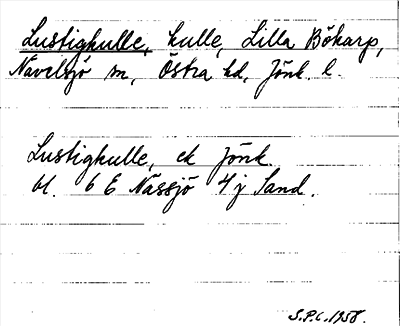 Lustigkulle, kulle, Lilla Bökarp,
Navelsjö sn, Östra hd, Jönk. l.
Lustigkulle, ek Jönk.
bl. 6 E Nässjö 4 j Sand.
S.P.C. 1958.